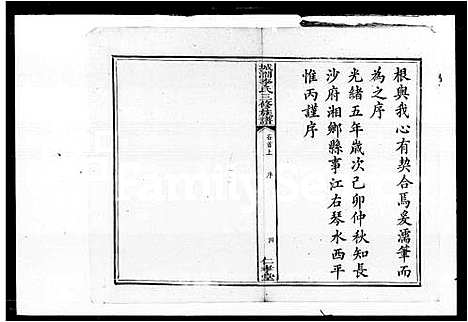 根與我心有契合焉爰濡筆而
為之序
光緒五年歲次己卯仲秋知長
沙府湘鄉縣事江右琴水西平
惟丙謹序
城澗李氏三修族譜
卷首上 序 四 仁孝堂
FamilySearch